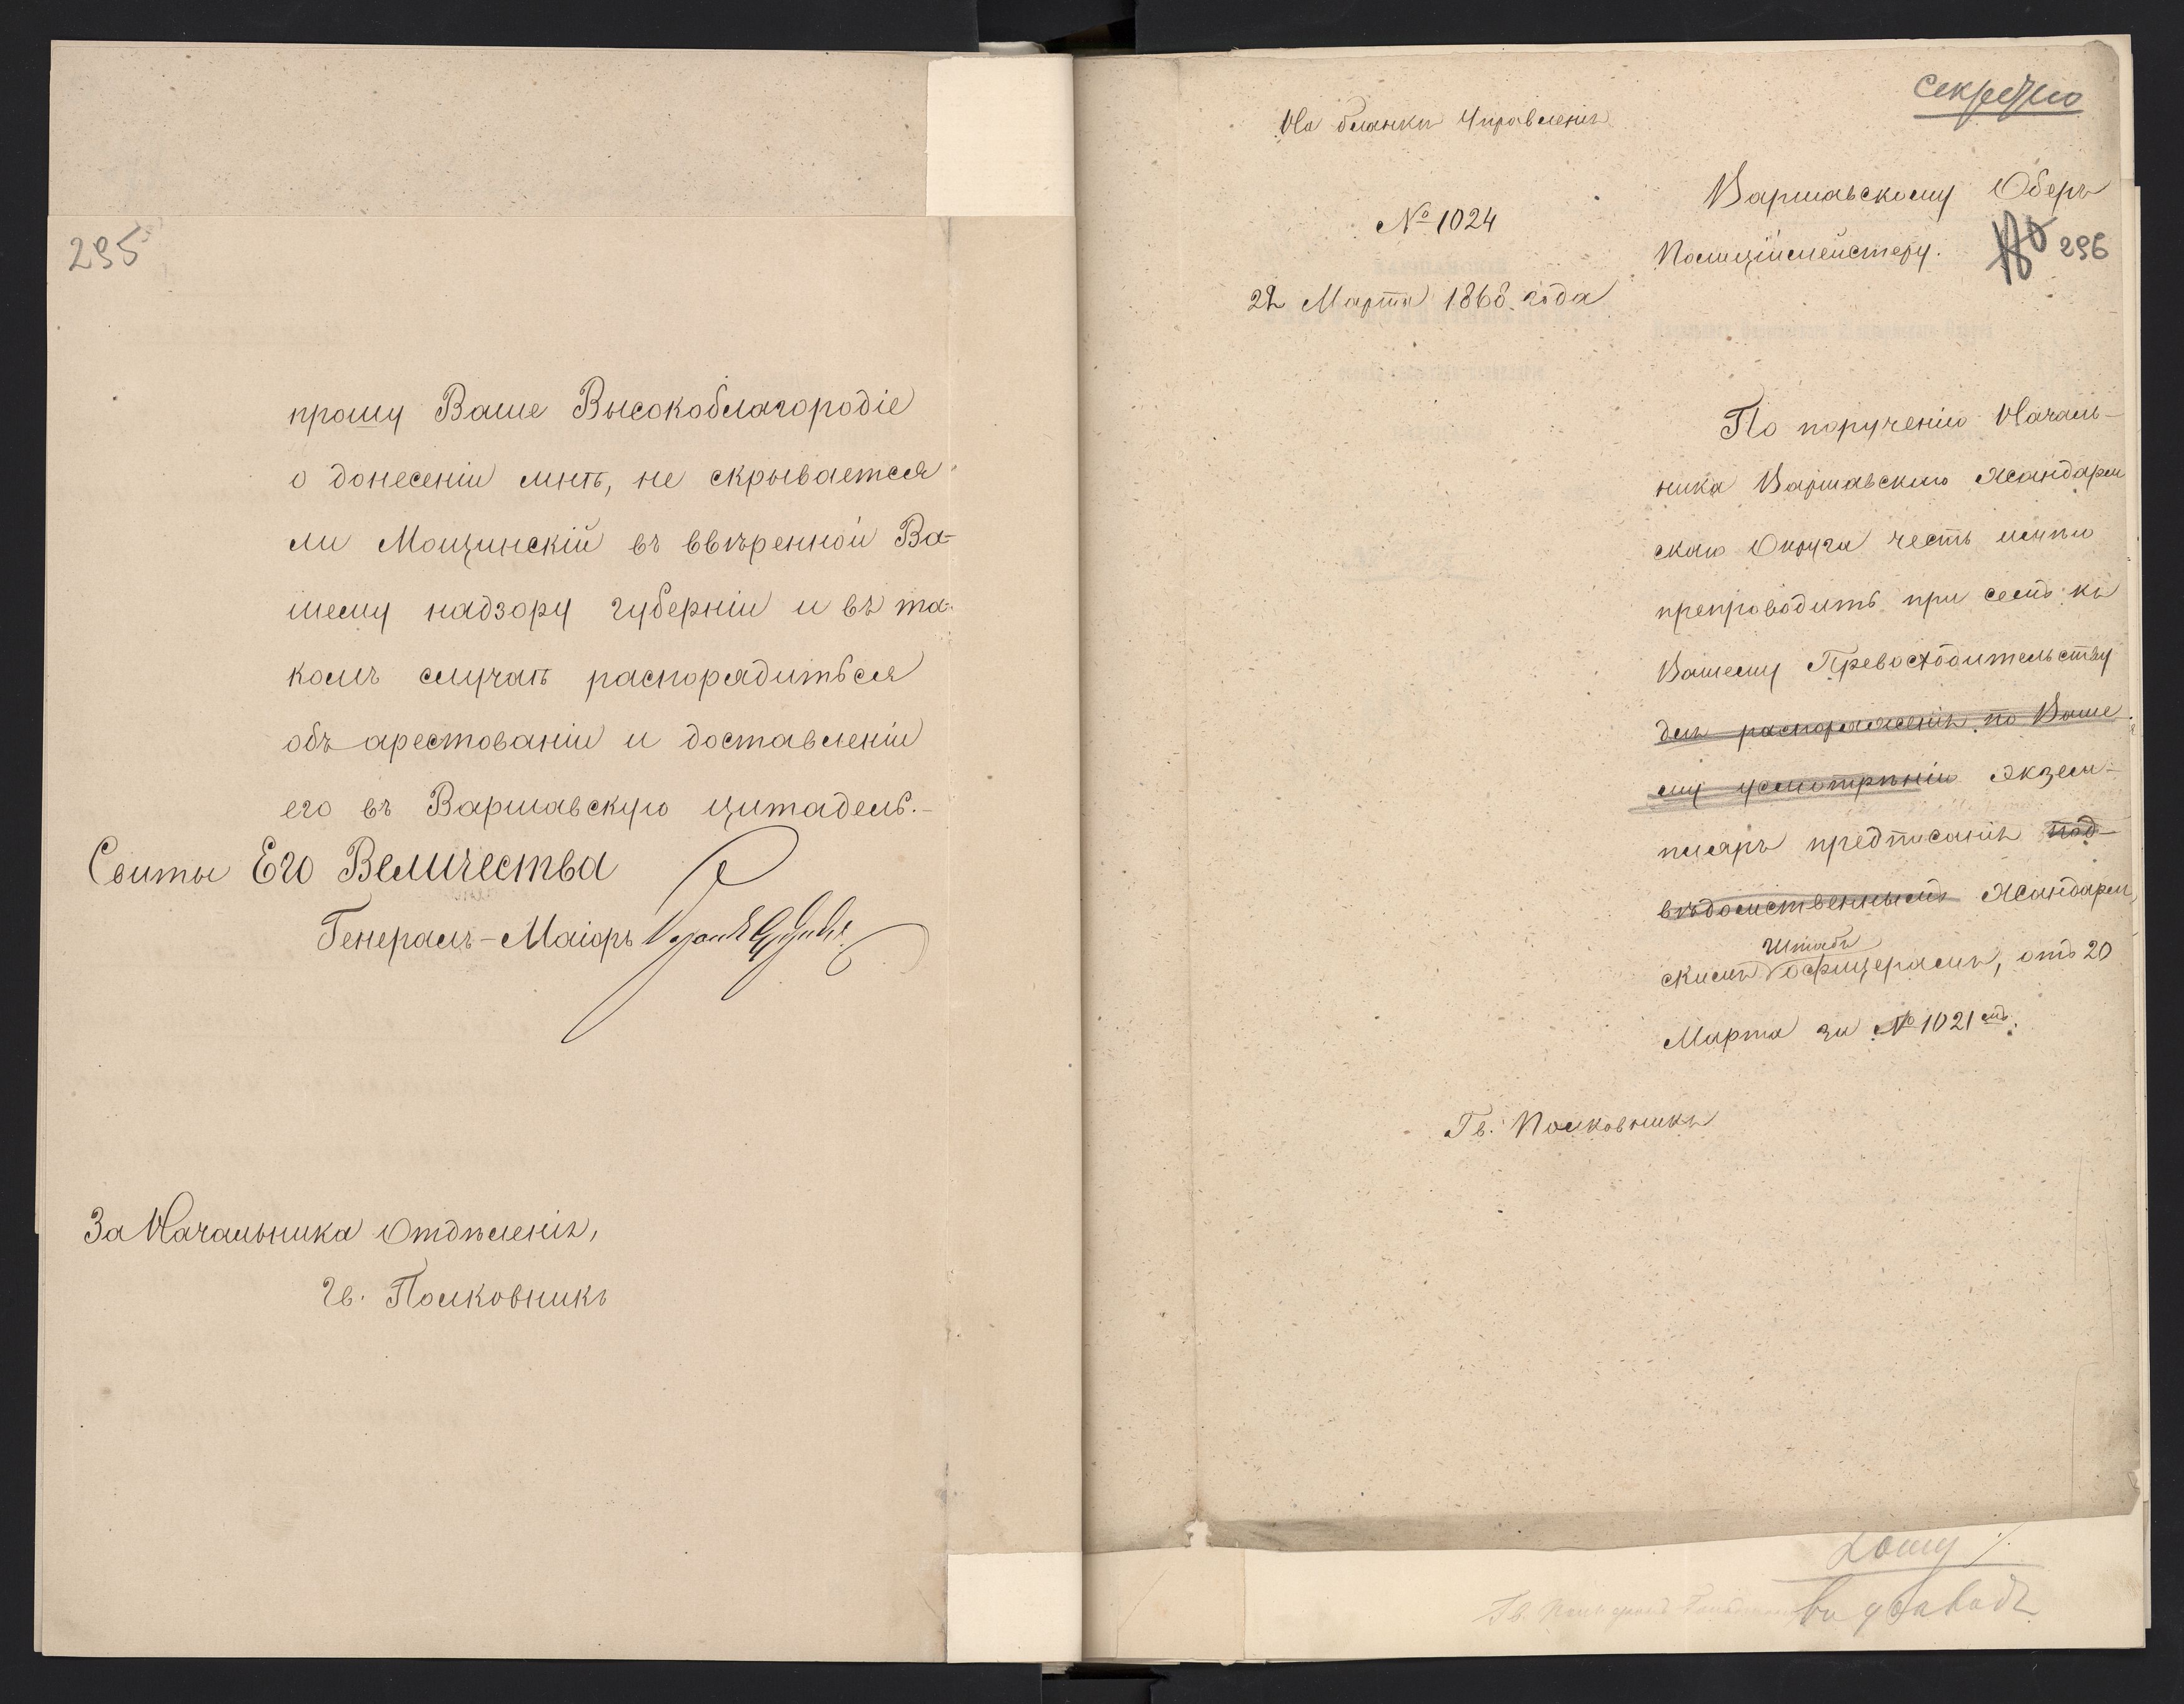 295
прошу Ваше Высокоблагородіе
о донесеніи мнѣ, не скрывается
ли Мощинскій въ ввѣренной Ва-
шему надзору губерніи и въ та-
комъ случаѣ распорядиться
объ арестованіи и доставленіи
его въ Варшавскую цитадель.-
Свиты Его Величества
Генералъ-Маіоръ
За Начальника Отдѣленія,
Гв. Полковникъ
Секретно
На бланкѣ Управленія
Варшавскому Оберъ
Полиціймейстеру.
296
№ 1024
22 Марта 1868 года
По порученію Началь-
ника Варшавскаго Жандарм
скаго Округа честь имѣю
препроводить при семъ къ
Вашему Превосходительству
для распоряженія по Ваше
му усмотрѣнію экзем-
пляръ предписанія под-
вѣдомственнымъ Жандарм
скимъ Штабъ офицерамъ, отъ 20
Марта за № 1021мъ.
Гв. Полковникъ